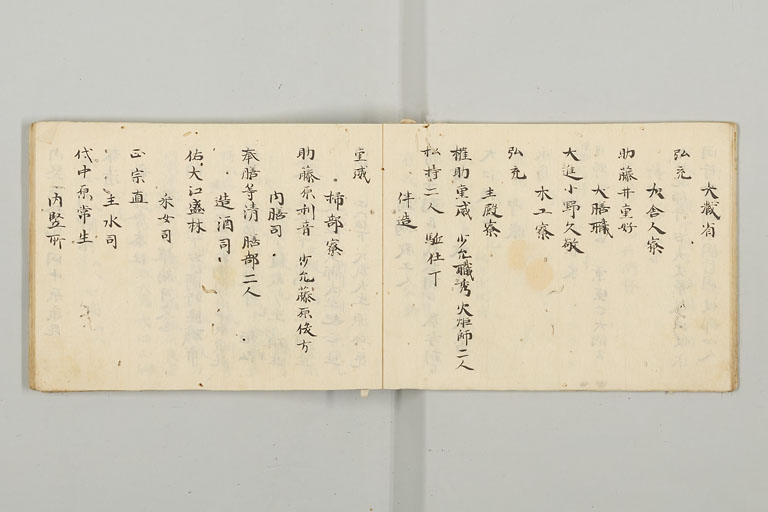 大蔵省
弘充
大舎人寮
助藤井重好
大膳職
大進小野久敏
木工寮
弘充
主殿寮
権助重威 少允職秀 火炬師二人
松持二人 駈仕丁
伴造
重威
掃部寮
助藤原利音 少允藤原俊方
内膳司
奉膳等清 膳部二人
造酒司
佑大江盛林
采女司
正宗直
主水司
代中原常生
内竪所